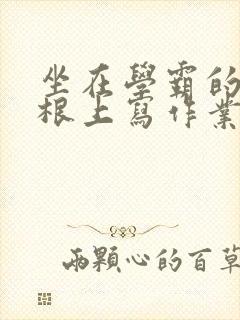 坐在學霸的
根上寫作業
兩顆心的百草